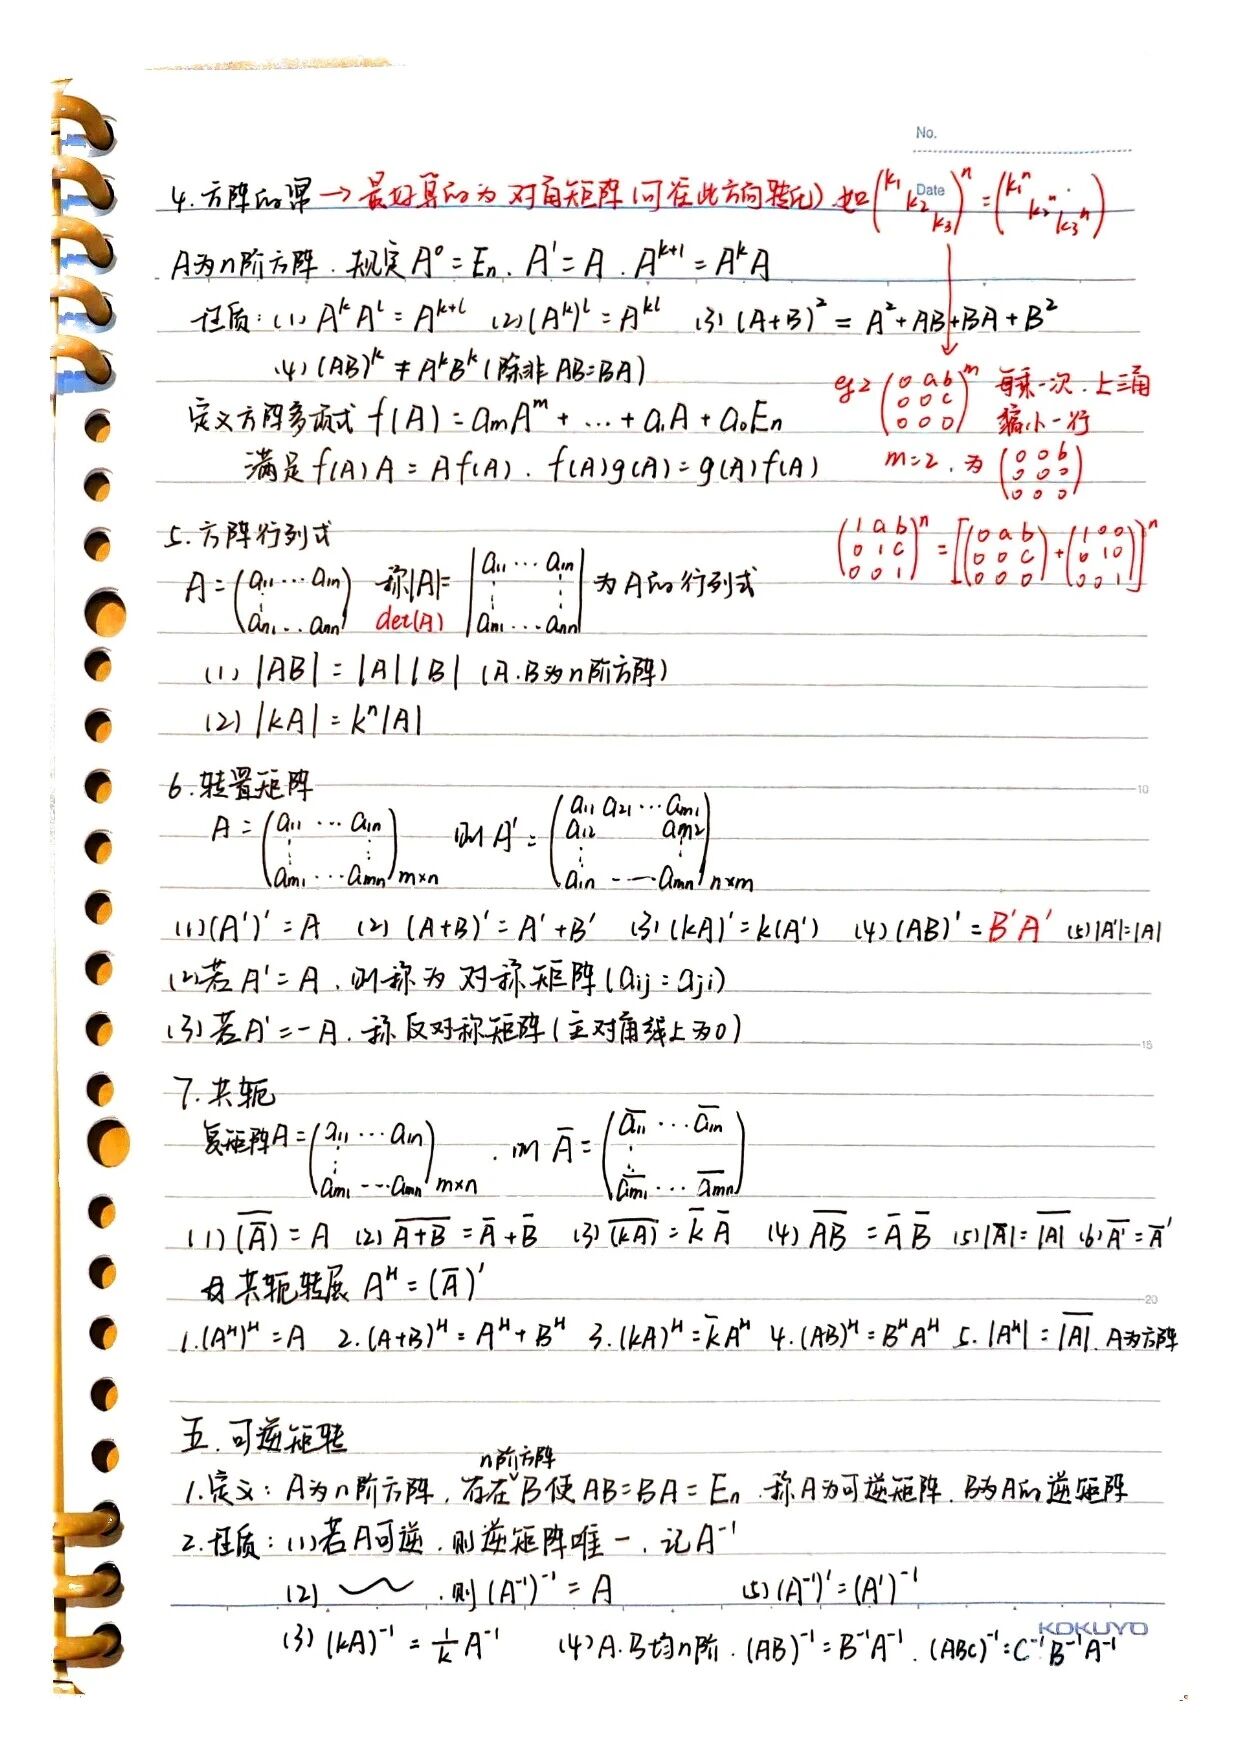 No.
Date
4.方阵的幂 → 最好算的为 对角矩阵(可往此方向转化).如 (k₁ k₂ k₃)ⁿ = (k₁ⁿ k₂ⁿ k₃ⁿ)
A为n阶方阵.规定 A⁰ = Eₙ. A¹ = A. Aᵏ⁺¹ = AᵏA
性质:(1) AᵏAˡ = Aᵏ⁺ˡ (2)(Aᵏ)ˡ = Aᵏˡ (3) (A+B)² = A²+AB+BA+B²
(4) (AB)ᵏ ≠ AᵏBᵏ (除非 AB=BA)
eg2 (0 a b; 0 0 c; 0 0 0)ᵐ 每乘一次.上三角
缩小一行
定义方阵多项式 f(A) = aₘAᵐ + … + a₁A + a₀Eₙ
满足 f(A)A = Af(A). f(A)g(A) = g(A)f(A)
m=2.为 (0 0 b; 0 0 0; 0 0 0)
(1 a b; 0 1 c; 0 0 1)ⁿ = [(0 a b; 0 0 c; 0 0 0) + (1 0 0; 0 1 0; 0 0 1)]ⁿ
5.方阵行列式
A = (a₁₁ … a₁ₙ; ⋮; aₙ₁ … aₙₙ) 称|A| = |a₁₁ … a₁ₙ; ⋮ ⋮; aₙ₁ … aₙₙ| 为A的行列式
det(A)
(1) |AB| = |A||B| (A.B为n阶方阵)
(2) |kA| = kⁿ|A|
6.转置矩阵
10
A = (a₁₁ … a₁ₙ; ⋮ ⋮; aₘ₁ … aₘₙ)m×n 则 A' = (a₁₁ a₂₁ … aₘ₁; a₁₂ aₘ₂; ⋮ ⋮; a₁ₙ --- aₘₙ)n×m
(1)(A')' = A (2) (A+B)' = A'+B' (3) (kA)' = k(A') (4) (AB)' = B'A' (5)|A'|=|A|
(2)若 A' = A.则称为 对称矩阵(aij = aji)
(3)若A' = -A.称反对称矩阵(主对角线上为0)
15
7.共轭
复矩阵A = (a₁₁ … a₁ₙ; ⋮; aₘ₁ --- aₘₙ)m×n . 则 A̅ = (a̅₁₁ … a̅₁ₙ; ⋮; a̅ₘ₁ … a̅ₘₙ)
(1) \overline{(A̅)} = A (2) \overline{A+B} = A̅+B̅ (3) \overline{(kA)} = k̅ A̅ (4) \overline{AB} = A̅ B̅ (5)|A̅| = \overline{|A|} (6)\overline{A'} = A̅'
共轭转展 Aᴴ = (A̅)'
20
1.(Aᴴ)ᴴ = A 2.(A+B)ᴴ = Aᴴ+Bᴴ 3.(kA)ᴴ = k̅Aᴴ 4.(AB)ᴴ = BᴴAᴴ 5.|Aᴴ| = \overline{|A|}. A为方阵
五.可逆矩转
n阶方阵
1.定义:A为n阶方阵,存在B使 AB=BA=Eₙ.称A为可逆矩阵.B为A的逆矩阵
2.性质:(1)若A可逆.则逆矩阵唯一.记A⁻¹
(2) .则 (A⁻¹)⁻¹ = A (5)(A⁻¹)' = (A')⁻¹
(3) (kA)⁻¹ = 1/k A⁻¹ (4)A.B均n阶.(AB)⁻¹ = B⁻¹A⁻¹. (ABC)⁻¹ = C⁻¹B⁻¹A⁻¹
KOKUYO